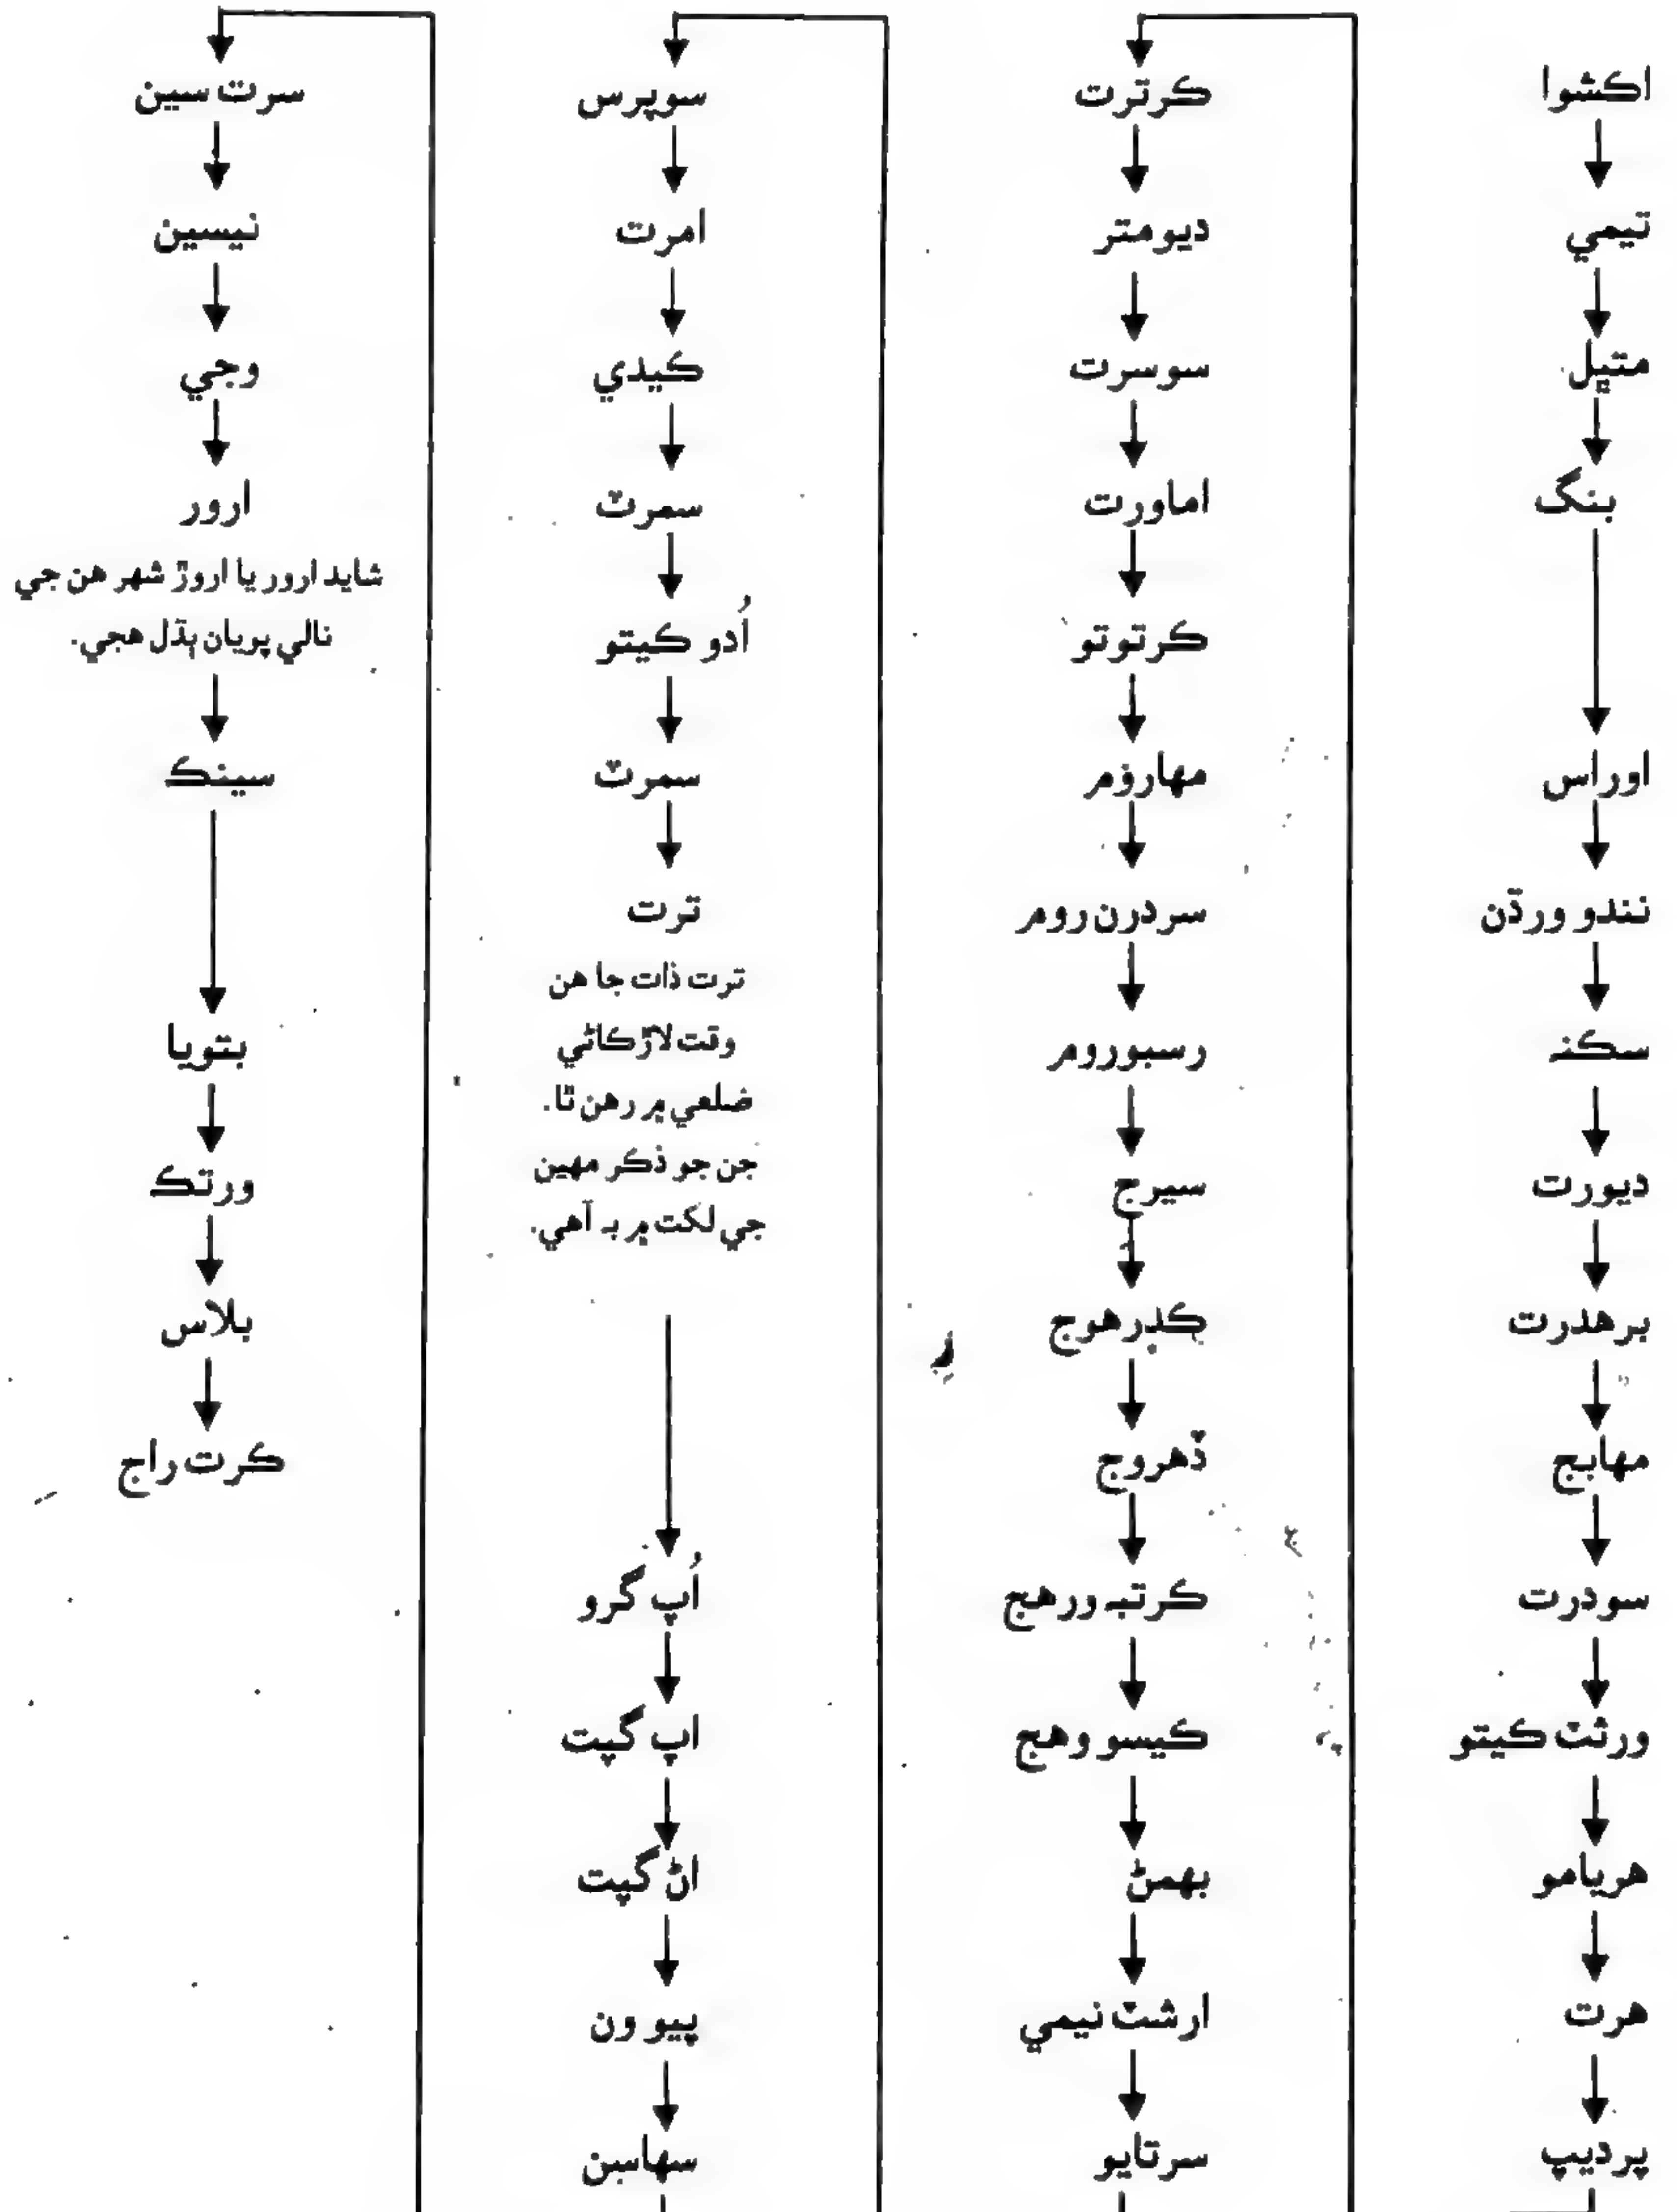 اکشوا
تيمي
متيل
بنگ
اوراس
نندو ورڌن
سکنہ
ديورت
برهدرت
مهابج
سودرت
ورشٽ ڪيتو
هريامو
هرت
پرديپ
ڪرترت
ديومتر
سوسرت
اماورت
ڪرتوتو
مهارؤم
سردرن روم
رسبوروم
سيرج
ڪڊرهوج
ڏهروج
ڪرتبہ ورهج
ڪيسو وهج
بهمڻ
ارشٽ نيمي
سرتايو
سوپرس
امرت
ڪيدي
سمرٽ
اُدو ڪيتو
سمرٽ
ترت
ترت ذات جا هن
وقت لاڙڪاڻي
ضلعي ۾ رهن ٿا.
جن جو ذڪر مهين
جي لکت ۾ بہ آهي.
اُپ گرو
اپ گپت
اڻ گپت
پيو ون
سهاسن
سرت سين
نيسين
وجي
ارور
شايد ارور يا اروڙ شهر هن جي
نالي پويان ٻڌل هجي.
سينڪ
بتويا
ورتڪ
بلاس
ڪرت راج